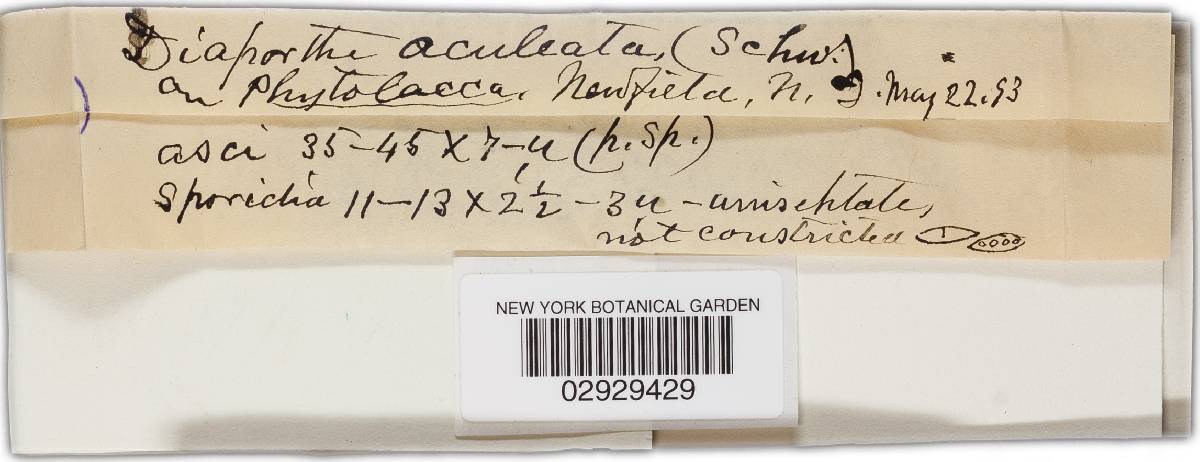 Diaporthe aculeata, (Schw.)
on Phytolacca. Newfield, N. J. May 22.93
asci 35-45 X 7 µ (p. sp.)
Sporidia 11-13 X 2½ - 3 µ - uniseptate,
not constricted
NEW YORK BOTANICAL GARDEN
02929429